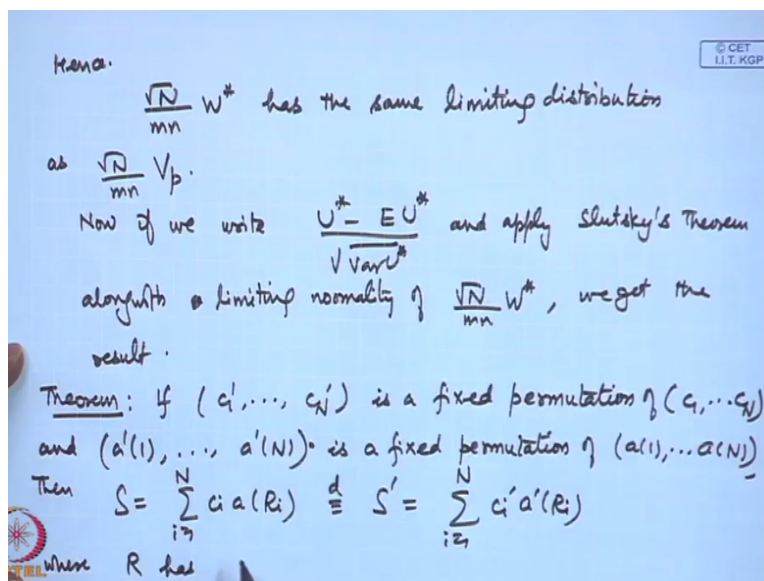 Hence.
© CET
I.I.T. KGP
√N/mn W* has the same limiting distribution
as √N/mn Vp.
Now if we write (U* - EU*)/√Var U* and apply Slutsky's Theorem
alongwith limiting normality of √N/mn W*, we get the
result.
Theorem: If (c1', ..., cN') is a fixed permutation of (c1, ... cN)
and (a'(1), ..., a'(N)) is a fixed permutation of (a(1), ... a(N))
Then S = Σ_{i=1}^{N} ci a(Ri) d≡ S' = Σ_{i=1}^{N} ci' a'(Ri)
where R has